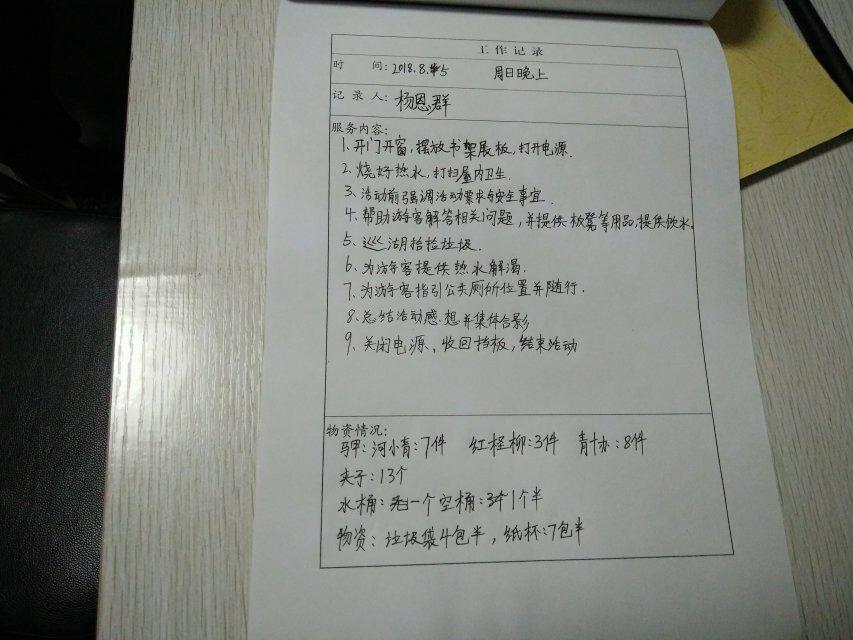 工作记录
时 间：2018.8.5 周日晚上
记 录 人：杨恩群
服务内容：
1、开门开窗，摆放书架展板，打开电源．
2、烧好热水，打扫屋内卫生．
3、活动前强调活动要求与安全事宜．
4、帮助游客解答相关问题，并提供板凳等用品，提供饮水．
5、巡湖拾捡垃圾．
6、为游客提供热水解渴．
7、为游客指引公共厕所位置并随行．
8、总结活动感想并集体合影
9、关闭电源、收回挡板，结束活动
物资情况：
马甲：河小青：7件 红柽柳：3件 青十办：8件
夹子：13个
水桶：一个空桶：1个半
物资：垃圾袋4包半，纸杯：7包半